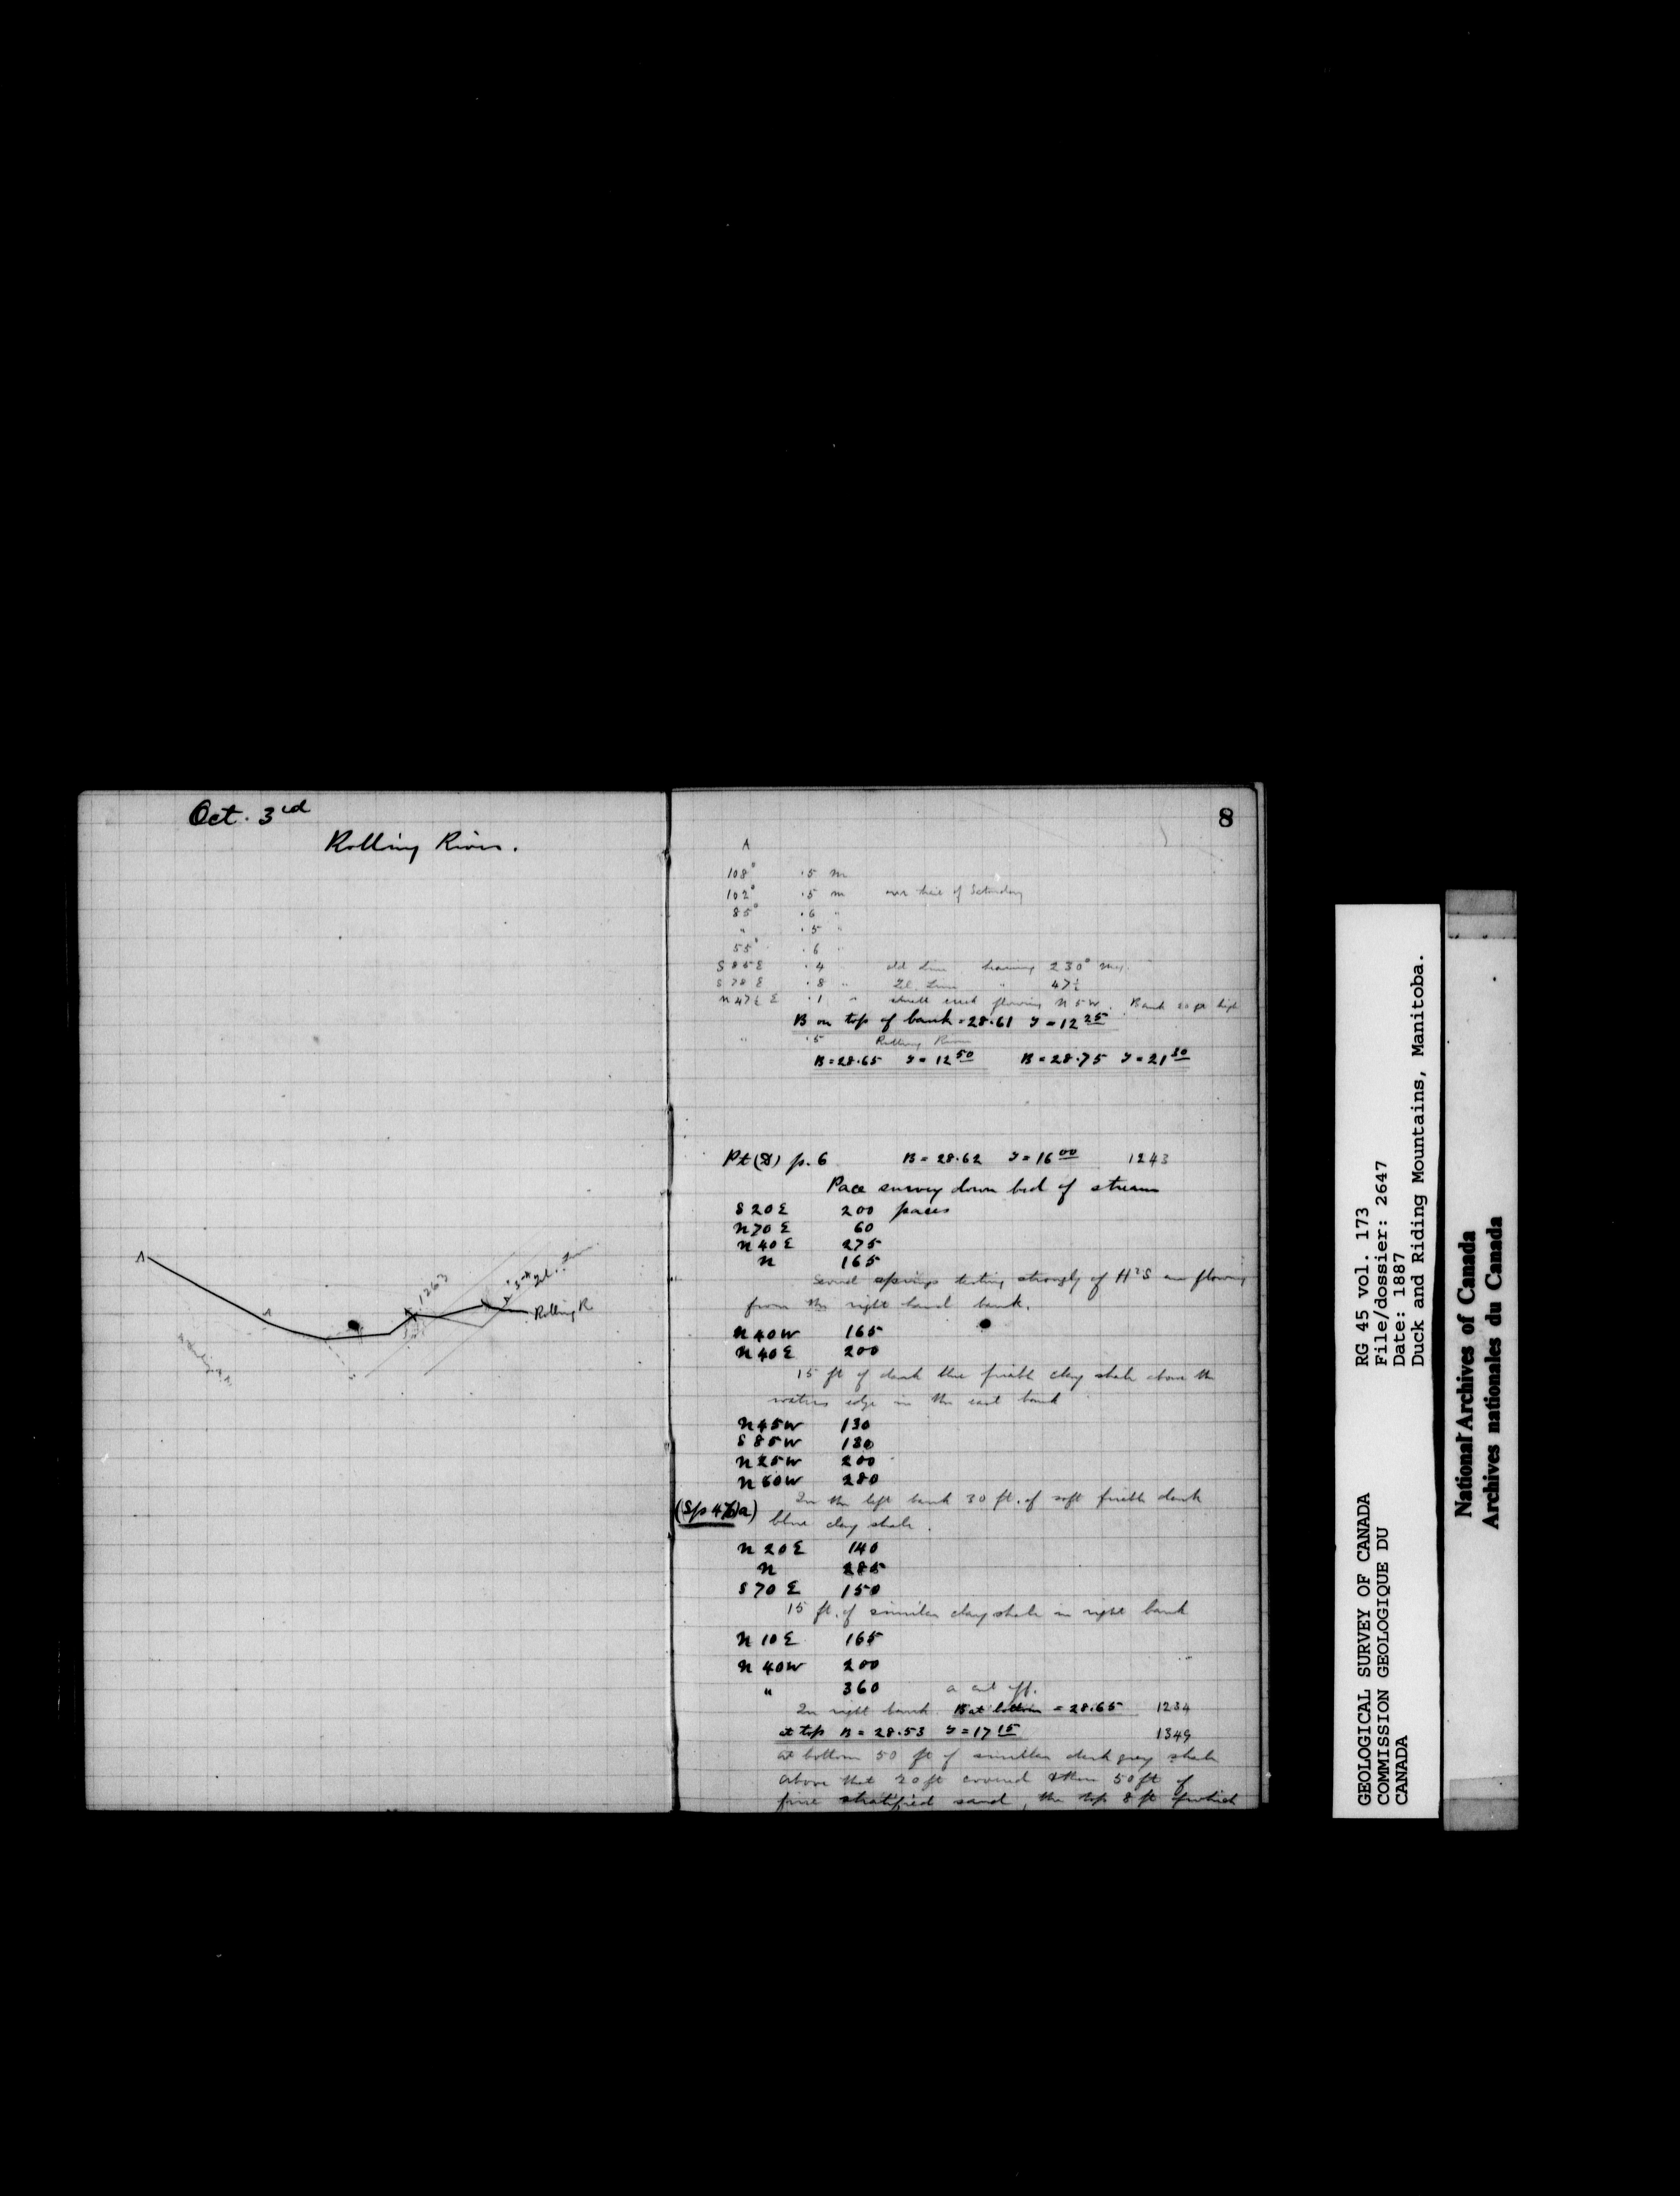 Oct. 3rd
Rolling River.
A
A
1263
Tel. Line
Rolling R
8
A
108° .5 m
102° .5 m over trail of Saturday
85° .6 "
" .5 "
55° .6 "
S 85 E .4 old Line bearing 230° mag.
S 78 E .8 " Tel. Line " 47½
N 47½ E .1 " small creek flowing N 5 W. Bank 20 ft high
B on top of bank = 28.61 T = 12 25
" .5 Rolling River
B = 28.65 T = 12 50 B = 28.75 T = 21 30
Pt () p. 6 B = 28.62 T = 16 00 1243
Pace survey down bed of stream
S 20 E 200 paces
N 70 E 60
N 40 E 275
N 165
Several springs tasting strongly of H²S are flowing
from the right hand bank.
N 40 W 165
N 40 E 200
15 ft of dark blue friable clay shale above the
waters edge in the east bank
N 45 W 130
S 85 W 130
N 25 W 200
N 60 W 280
In the left bank 30 ft. of soft friable dark
(Sp 47a) blue clay shale.
N 20 E 140
N 285
S 70 E 150
15 ft. of similar clay shale in right bank
N 10 E 165
N 40 W 200
" 360 a cut off.
In right bank B at bottom = 28.65 1234
at top B = 28.53 T = 17 15 1349
at bottom 50 ft of similar dark grey shale
above that 20 ft covered & then 50 ft of
fine stratified sand, the top 8 ft of which
GEOLOGICAL SURVEY OF CANADA RG 45 vol. 173
COMMISSION GEOLOGIQUE DU File/dossier: 2647
CANADA Date: 1887
Duck and Riding Mountains, Manitoba.
National Archives of Canada
Archives nationales du Canada